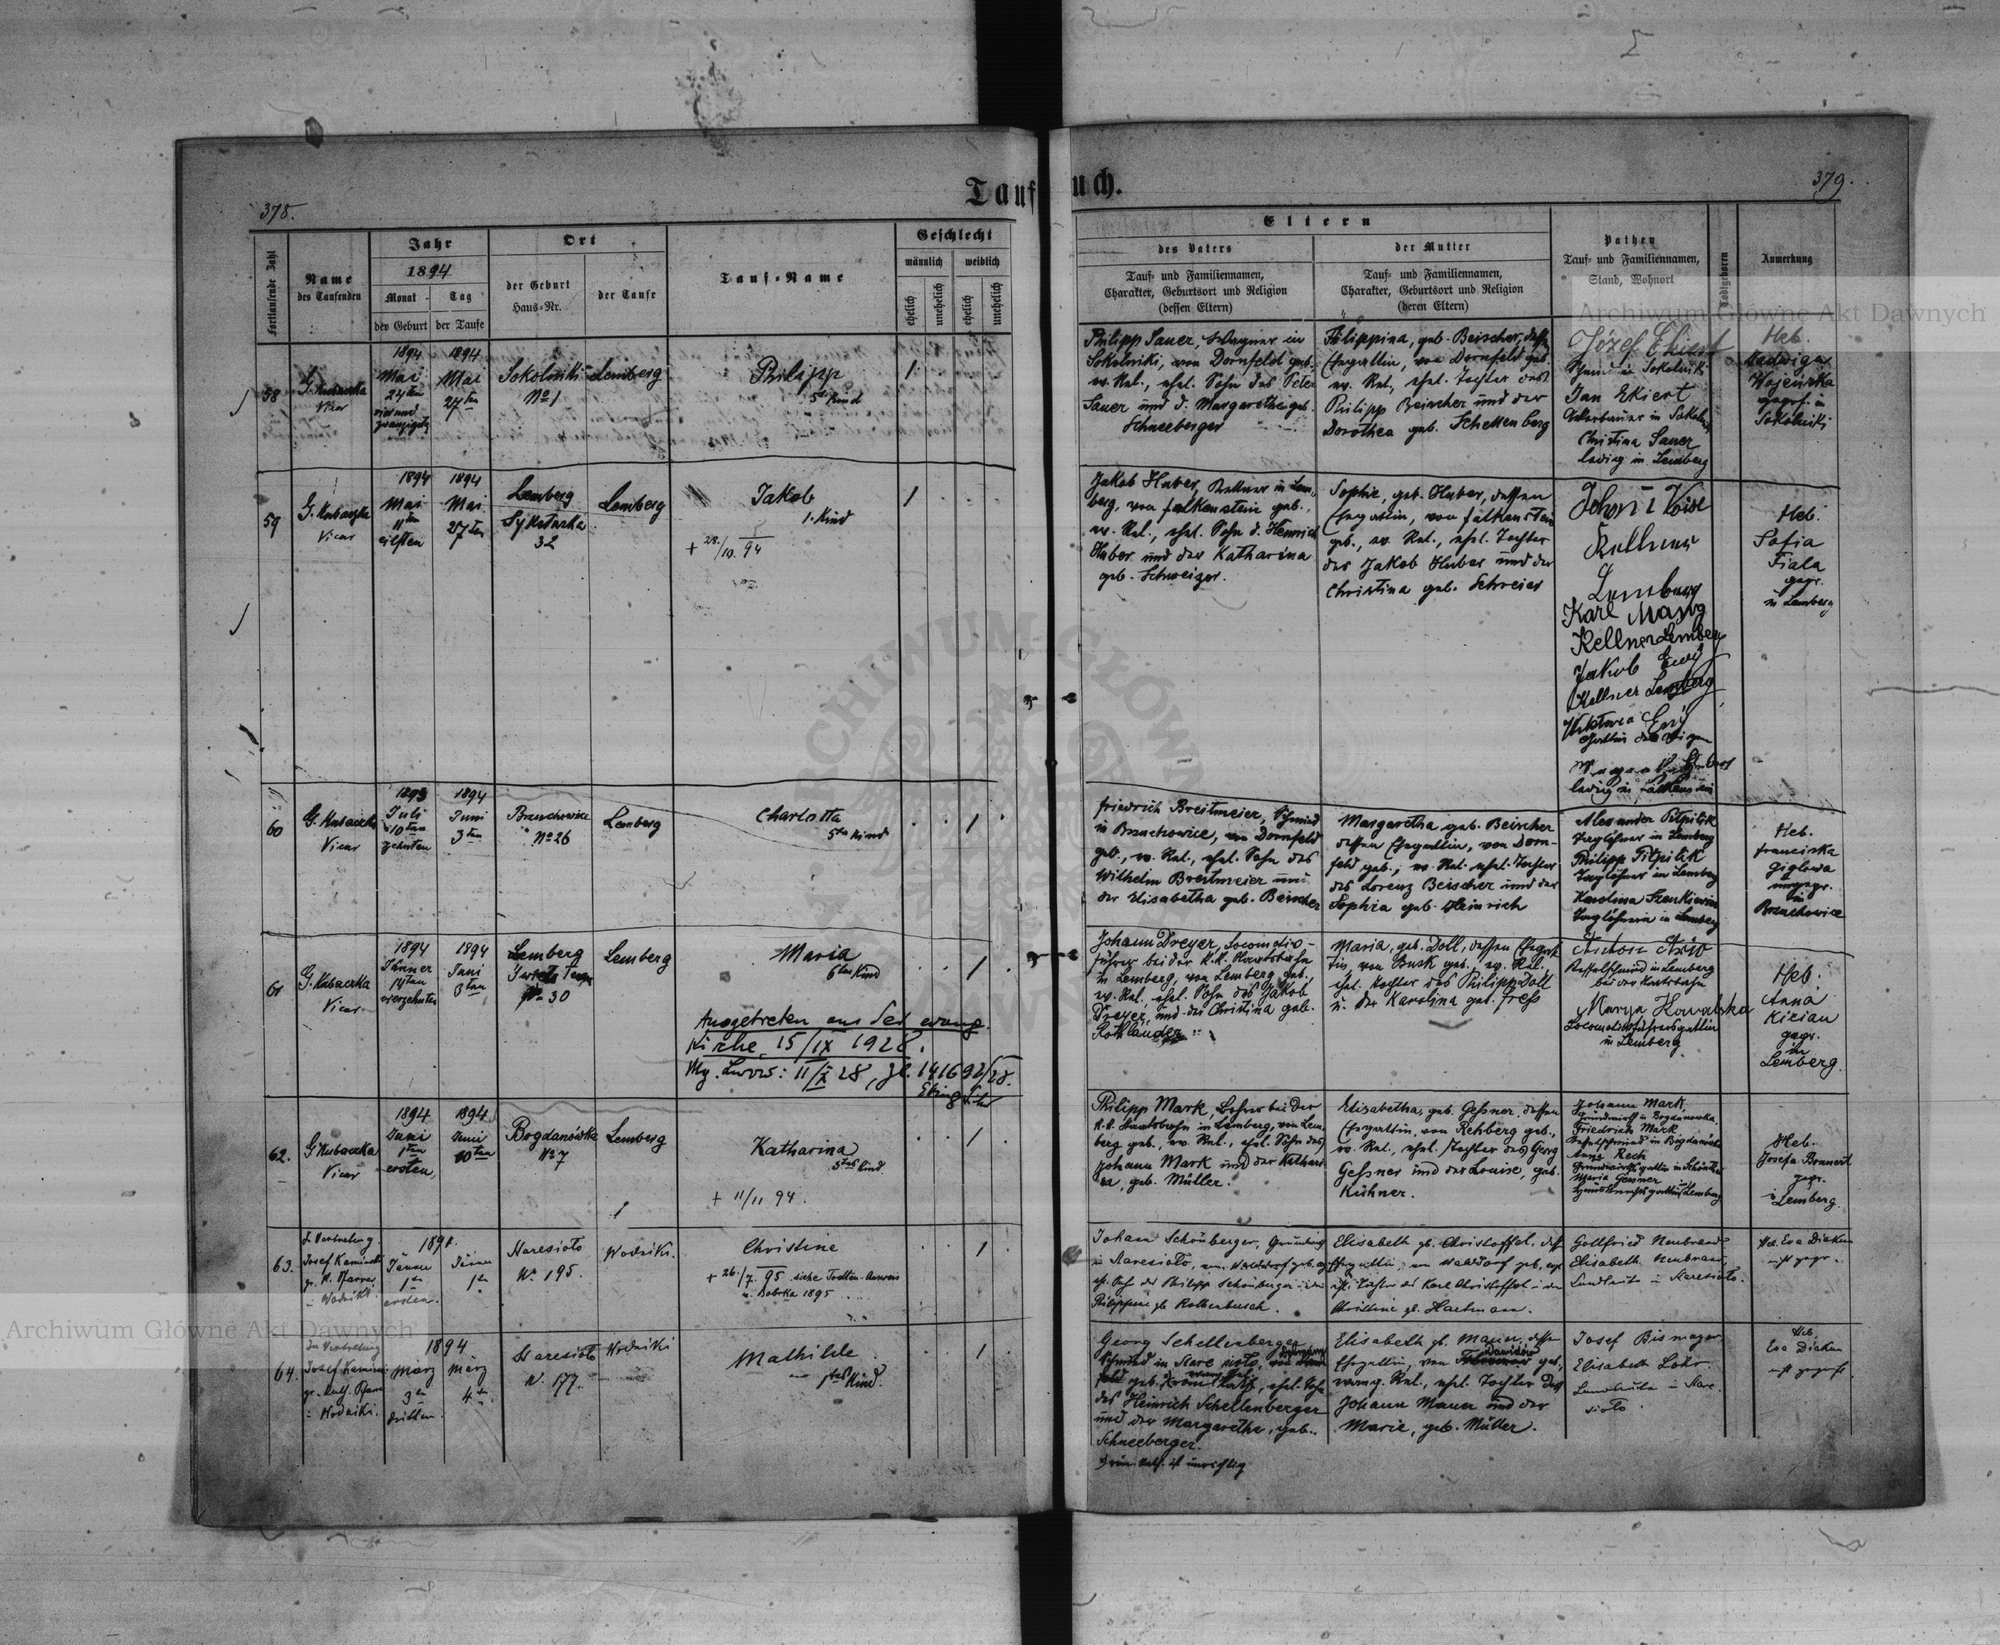 Taufbuch.
378.
379.
Fortlaufende Zahl
Name
des Taufenden
Jahr
1894
Monat
der Geburt
Tag
der Taufe
Ort
der Geburt
Haus-Nr.
der Taufe
Tauf-Name
Geschlecht
männlich
weiblich
ehelich
unehelich
ehelich
unehelich
Eltern
des Vaters
Tauf- und Familiennamen,
Charakter, Geburtsort und Religion
(dessen Eltern)
der Mutter
Tauf- und Familiennamen,
Charakter, Geburtsort und Religion
(deren Eltern)
Pathen
Tauf- und Familiennamen,
Stand, Wohnort
Todtgeboren
Anmerkung
58
G. Kubaczka
Vicar
1894
Mai
24ten
vier und
zwanzigsten
1894
Mai
27ten
Sokolniki
No 1
Lemberg
Philipp
5tes Kind
1
Philipp Sauer, Wagner in
Sokolniki, von Dornfeld geb.
ev. Rel., ehel. Sohn des Peter
Sauer und d. Margarethe geb.
Schneeberger
Philippina, geb. Beischer, dessen
Ehegattin, von Dornfeld geb.
ev. Rel., ehel. Tochter des
Philipp Beischer und der
Dorothea geb. Schellenberg
Józef Ekiert
Schmied in Sokolniki
Jan Ekiert
Ackerbauer in Sokolniki
Christina Sauer
ledig in Lemberg
Heb.
Hadwiga
in
Sokolniki
59
G. Kubaczka
Vicar
1894
Mai
11ten
eilften
1894
Mai
27ten
Lemberg
Sykstuska
32
Lemberg
Jakob
1. Kind
+ 28./10. 94
1
Jakob Huber, Kellner in Lem-
berg, von Falkenstein geb.,
ev. Rel., ehel. Sohn d. Heinrich
Huber und der Katharina
geb. Schweizer.
Sophie, geb. Huber, dessen
Ehegattin, von Falkenstein
geb., ev. Rel., ehel. Tochter
des Jakob Huber und der
Christina geb. Schreier
Kellner
Lemberg
Karl
Kellner Lemberg
Jakob
Kellner Lemberg
Wiktoria
ledig in Falkenstein
Heb.
Sofia
Fiala
gepr.
in Lemberg
60
G. Kubaczka
Vicar
1893
Juli
10ten
zehnten
1894
Juni
3ten
Brzuchowice
No 26
Lemberg
Charlotta
5tes Kind
1
Friedrich Breitmeier, Schmied
in Brzuchowice, von Dornfeld
geb., ev. Rel., ehel. Sohn des
Wilhelm Breitmeier und
der Elisabetha geb. Beischer
Margaretha geb. Beischer
dessen Ehegattin, von Dorn-
feld geb., ev. Rel. ehel. Tochter
des Lorenz Beischer und der
Sophia geb. Heinrich
Alexander Pilpilik
Taglöhner in Lemberg
Philipp Pilpilik
Taglöhner in Lemberg
Karolina
Taglöhnerin in Lemberg
Heb.
Franciska
ungepr.
in
Brzuchowice
61
G. Kubaczka
Vicar
1894
Jänner
14ten
vierzehnten
1894
Juni
3ten
Lemberg
No 30
Lemberg
Maria
6tes Kind
1
Ausgetreten aus der evang.
Kirche, 15/IX 1928.
Mg. Lwów: 11/X 28, Zl. 141692/28.
Johann Dreyer, Locomotiv-
führer bei der K.K. Staatsbahn
in Lemberg, von Lemberg geb.,
ev. Rel., ehel. Sohn des Jakob
Dreyer und der Christina geb.
Rothländer
Maria, geb. Doll, dessen Ehegat-
tin, von Busk geb., ev. Rel.,
ehel. Tochter des Philipp Doll
u. der Karolina geb. Freß
Kesselschmied in Lemberg
bei der Staatsbahn
Marya Kowalska
Locomotivführersgattin
in Lemberg
Heb.
Anna
Kizian
gepr.
in
Lemberg.
62.
G. Kubaczka
Vicar
1894
Juni
1ten
ersten
1894
Juni
10ten
Bogdanówka
No 7
Lemberg
Katharina
5tes Kind
+ 11/11 94.
1
Philipp Mark, Bohrer bei der
K.K. Staatsbahn in Lemberg, von Lem-
berg geb., ev. Rel., ehel. Sohn des
Johann Mark und der Kathari-
na, geb. Müller.
Elisabetha, geb. Geßner, dessen
Ehegattin, von Rehberg geb.,
ev. Rel., ehel. Tochter des Georg
Geßner und der Louise, geb.
Kühner.
Johann Mark,
Grundwirth in Bogdanówka
Friedrich Mark
Kesselschmied in Bogdanówka
Anna Rech
Maria Gessner
Lemberg
Heb.
Josefa Bonnert
gepr.
in
Lemberg.
63.
In Vertretung
Josef Kaminski
gr. k. Pfarrer
in Wodniki.
1894.
Jänner
1ten
ersten.
Jänner
1ten
Staresioło
No 195.
Wodniki.
Christine
+ 26./7. 95 siehe Todten-Ausweis
v. Bobrka 1895
1
Johann Schönberger, Grundwirth
in Staresioło, von Walddorf geb. ev.
eh. Sohn des Philipp Schönberger und der
Philippine geb. Rothenbusch.
Elisabeth gb. Christoffel, dess.
Ehegattin, von Walddorf geb., ev.
eh. Tochter des Karl Christoffel und der
Christine gb. Hartmann.
Gottfried Neubrand
Elisabeth Neubrand,
Landleute in Staresioło.
Heb. Eva Diakun
nicht gepr.
64.
In Vertretung
Josef Kaminski
gr. kath. Pfarrer
in Wodniki.
1894.
März
3ten
dritten.
März
4ten.
Staresioło
N. 177.
Wodniki
Mathilde
1tes Kind.
1
Georg Schellenberger
Schmied in Stare sioło, von
feld geb., ehel. Sohn
des Heinrich Schellenberger
und der Margarethe, geb.
Schneeberger.
röm. kath. ist unrichtig
Elisabeth gb. Mauer, dessen
Ehegattin, von Dawidów geb.,
evang. Rel., ehel. Tochter des
Johann Mauer und der
Marie, geb. Müller.
Josef Bismayer
Elisabeth Lohr
Landleute in Stare-
sioło.
Heb.
Eva Diakun
nicht geprüft
Archiwum Główne Akt Dawnych
Archiwum Główne Akt Dawnych
ARCHIWUM GŁÓWNE